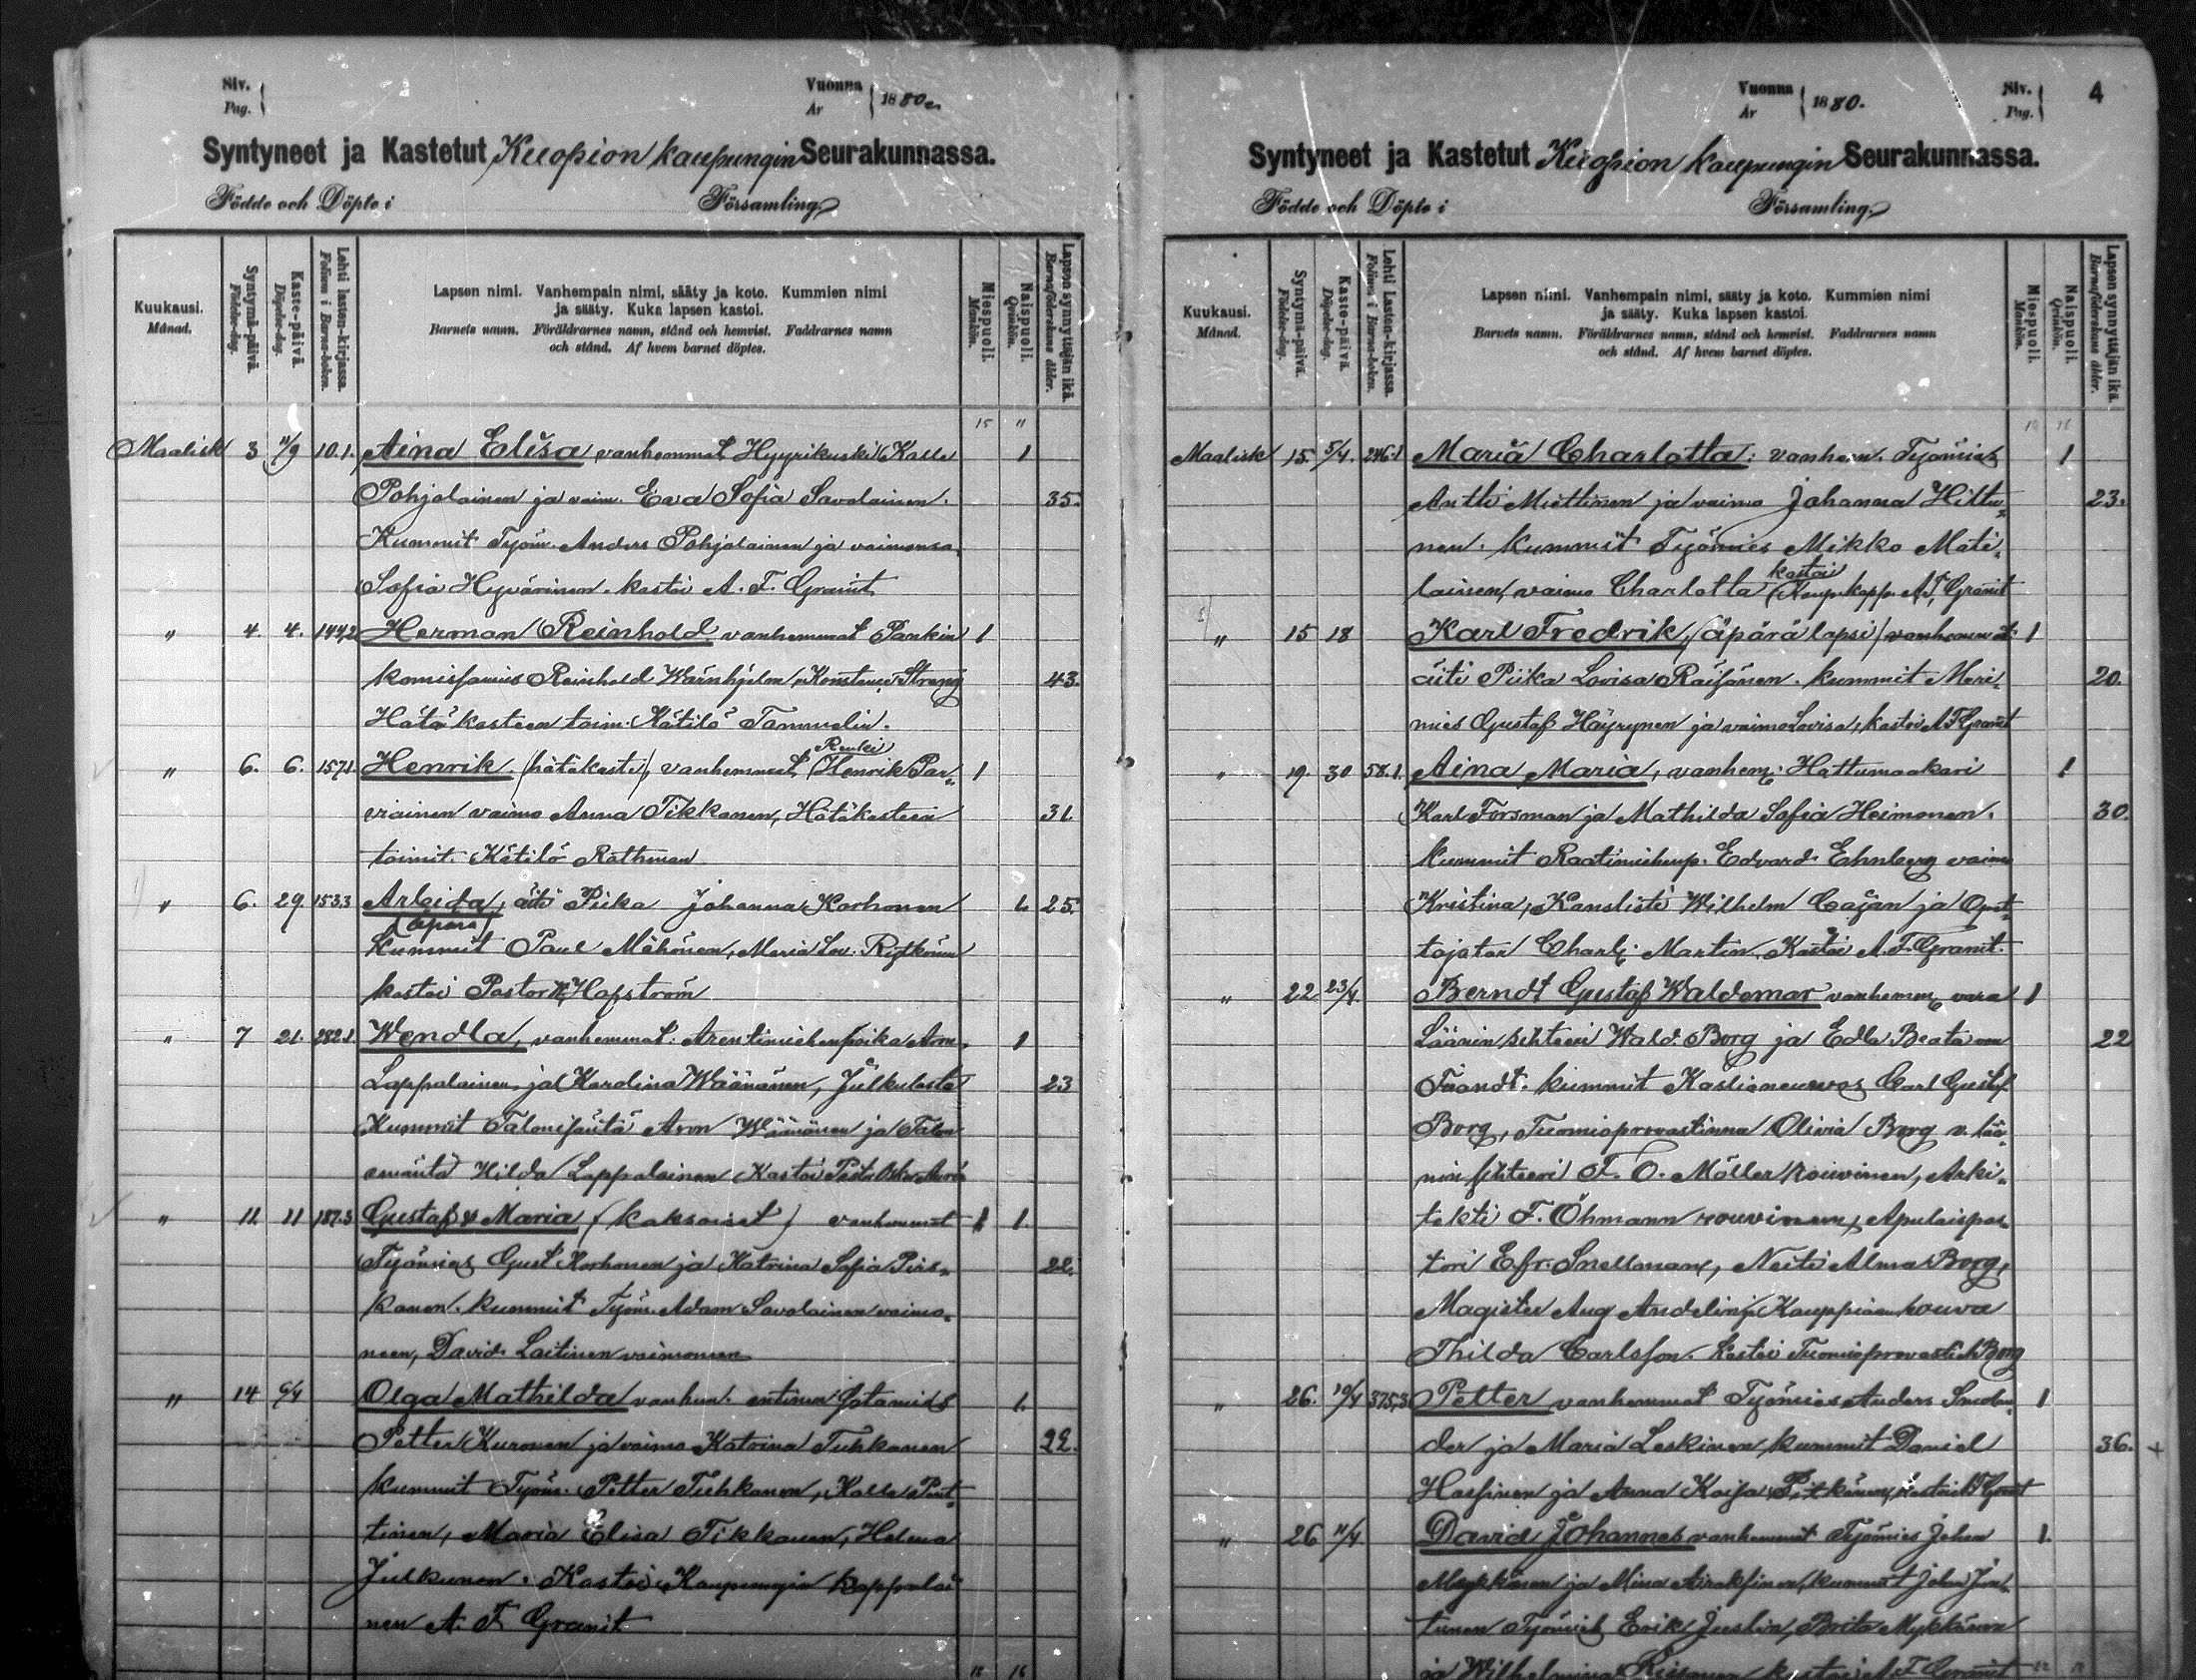 Siv. Pag. Vuonna År 1880
Syntyneet ja Kastetut Kuopion kaupungin Seurakunnassa.
Födde och Döpte i Församling.
Kuukausi. Månad.
Syntymä-päivä. Födelse-dag.
Kaste-päivä. Döpelse-dag.
Lehti lasten-kirjassa. Folium i Barna-boken.
Lapsen nimi. Vanhempain nimi, sääty ja koto. Kummien nimi
ja sääty. Kuka lapsen kastoi.
Barnets namn. Föräldrarnes namn, stånd och hemvist. Faddrarnes namn
och stånd. Af hvem barnet döptes.
Miespuoli. Mankön.
Naispuoli. Qvinkön.
Lapsen synnyttäjän ikä. Barnaföderskans ålder.
15 11
Maalisk 3 10.1. Aina Elisa vanhemmat Hyyrikuski Kalle 1
Pohjolainen ja vaim. Eva Sofia Savolainen. 35.
Kummit Työm. Anders Pohjolainen ja vaimonsa
Sofia Hyvärinen. kastoi A. F. Granit
" 4. 4. 144,2 Herman Reinhold vanhemmat Pankin 1
komissarius Reinhold Wärnhjelm, Konstance Streng 43.
Hätä kasteen toim. Kätilö Tammelin.
" 6. 6. 157.1 Henrik (hätäkaste), vanhemmat, Renki Henrik Par- 1
viainen vaimo Anna Tikkanen, Hätäkasteen 31.
toimit. Kätilö Rathman
" 6. 29 153.3 Arleida, äiti Piika Johanna Korhonen 1. 25.
(äpärä)
Kummit Paul Mähönen, Maria Lov.
kastoi Pastor Hafström
" 7 21. 282.1 Wendla, vanhemmat. Arentimiehenpoika Aron 1
Lappalainen ja Karolina Wäänänen, Julkulasta 23
Kummit Talonisäntä Aron Wäänänen ja Talon
emäntä Hilda Lappalainen Kastoi
" 11 11 187.3 Gustaf & Maria (kaksoiset) vanhemmat 1 1.
Työmies Gust Korhonen ja Katrina Sofia Pirs- 22.
kanen. kummit Työm. Adam Savolainen vaimo-
neen, David Laitinen vaimoneen
" 14 6/4 Olga Mathilda vanhem. entinen Sotamies 1.
Petter Kuronen ja vaimo Katrina Tuhkanen 22.
kummit Työm. Petter Tuhkanen, Kalle Pent-
tinen, Maria Elisa Tikkanen, Helena
Julkunen. Kastoi Kaupungin kappalai
nen A. F Granit
18 16
Vuonna År 1880. Siv. Pag. 4
Syntyneet ja Kastetut Kuopion kaupungin Seurakunnassa.
Födde och Döpte i Församling.
Kuukausi. Månad.
Syntymä-päivä. Födelse-dag.
Kaste-päivä. Döpelse-dag.
Lehti Lasten-kirjassa. Folium i Barna-boken.
Lapsen nimi. Vanhempain nimi, sääty ja koto. Kummien nimi
ja sääty. Kuka lapsen kastoi.
Barnets namn. Föräldrarnes namn, stånd och hemvist. Faddrarnes namn
och stånd. Af hvem barnet döptes.
Miespuoli. Mankön.
Naispuoli. Qvinkön.
Lapsen synnyttäjän ikä. Barnaföderskans ålder.
Maalisk 15 5/4. 246.1 Maria Charlotta: vanhem. Työmies 1
Antti Miettinen ja vaimo Johanna Hiltu- 23.
nen. kummit Työmies Mikko Mati-
lainen, vaimo Charlotta kastoi Kaup. kapp. A. F. Granit
" 15 18 Karl Fredrik, (äpärä lapsi) vanhemmat: 1
äiti Piika Lovisa Räisänen. kummit Meri- 20.
mies Gustaf Häyrynen ja vaimo Lovisa, kastoi A F Granit
" 19. 30 58.1. Aina Maria, vanhem: Hattumaakari 1
Karl Forsman ja Mathilda Sofia Heimonen. 30.
kummit Raatimiehenp. Edvard Ehnberg vaimo
Kristina, Kanslisti Wilhelm Cajan ja Opet-
tajatar Charl. Martin. Kastoi A. F. Granit.
" 22 23/4. Berndt Gustaf Waldemar vanhemm. vara 1
Läänin sihteeri Wald. Borg ja Edla Beata 22
kummit Carl Gustaf
Borg, Tuomioprovastinna Olivia Borg v. lää-
nin sihteeri F. O. Möller rouvineen, Arki-
tekti F. Öhmann rouvineen, Apulaispas-
tori E. fr. Snellman, Neiti Alma Borg,
Magister Aug Andelin, Kauppiaan rouva
Thilda Carlsson. kastoi Tuomioprovasti Borg
" 26. 10/4 375,3 Petter vanhemmat Työmies Anders Smolan- 1
der ja Maria Leskinen kummit Daniel 36. +
ja Anna Kaisa Pitkänen, kastoi A F Granit
" 26 11/4 David Johannes vanhemmat Työmies Johan 1.
Mykkänen ja Mina Airaksinen, kummit Johan Jun-
tunen Työmies Erik Juslin, Brita Mykkänen
ja Wilhelmina Rissanen kastoi A F Granit